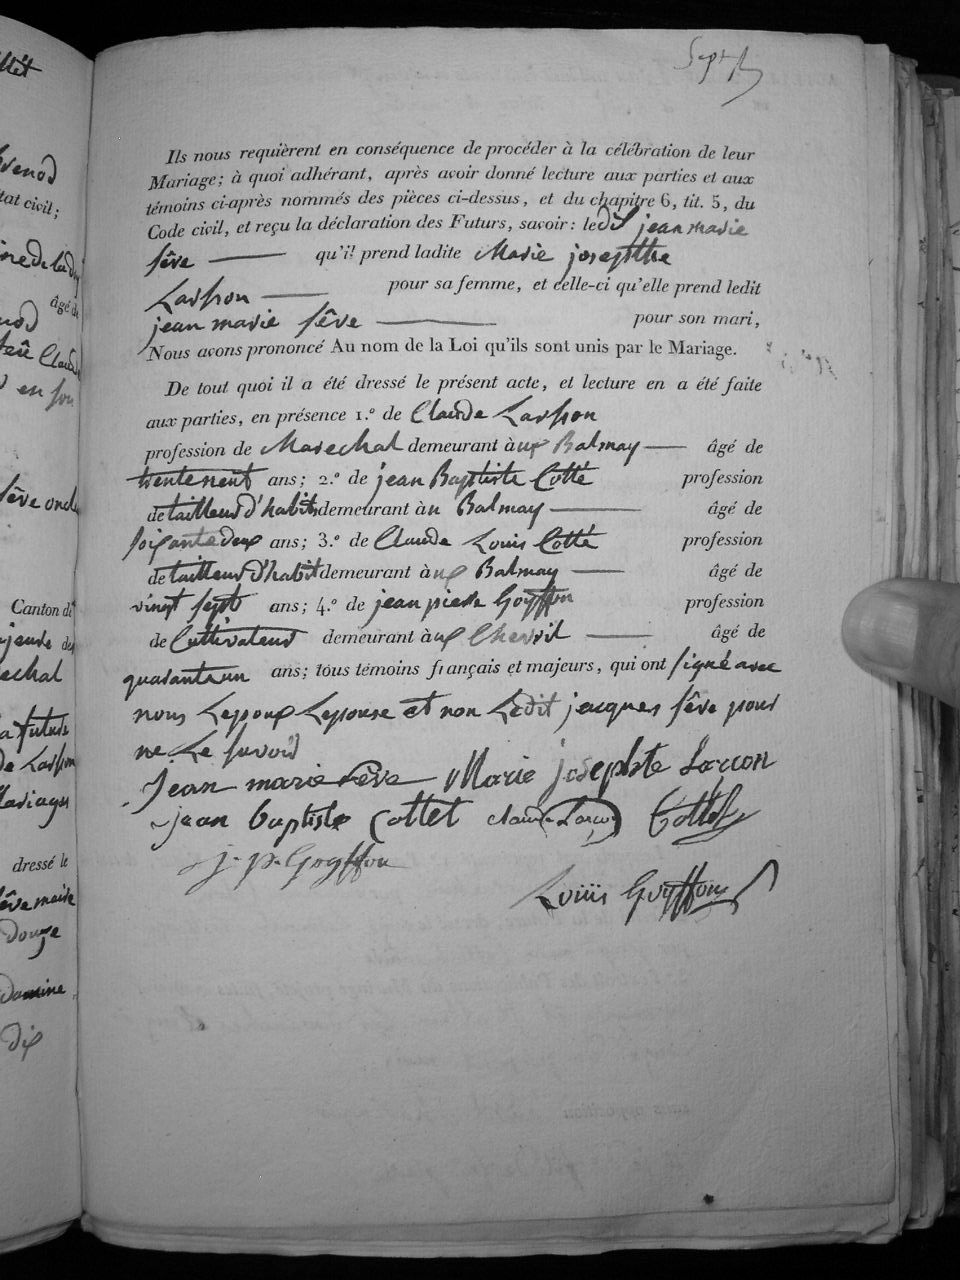 Sept
Ils nous requièrent en conséquence de procéder à la célébration de leur
Mariage; à quoi adhérant, après avoir donné lecture aux parties et aux
témoins ci-après nommés des pièces ci-dessus, et du chapitre 6, tit. 5, du
Code civil, et reçu la déclaration des Futurs, savoir: ledit jean marie
sêve ——— qu'il prend ladite Marie josephthe
Lasson ——— pour sa femme, et celle-ci qu'elle prend ledit
jean marie sêve ——— pour son mari,
Nous avons prononcé Au nom de la Loi qu'ils sont unis par le Mariage.
De tout quoi il a été dressé le présent acte, et lecture en a été faite
aux parties, en présence 1.º de Claude Lasson
profession de Marechal demeurant à aux Balmay — âgé de
trenteneuf ans; 2.º de jean Baptiste Cotté profession
de tailleur d'habits demeurant à au Balmay ——— âgé de
soixantedeux ans; 3.º de Claude Louis Cotté profession
de tailleur d'habit demeurant à aux Balmay —— âgé de
vingt sept ans; 4.º de jean pierre Goyffon profession
de Cultivateur demeurant à aux —— âgé de
quarante un ans; tous témoins français et majeurs, qui ont signé avec
nous Lepoux Lepouse et non Ledit jacques sêve pour
ne Le savoir
Jean marie sêve Marie josephte Larcon
jean baptiste Cottet claude Larcon Cottet
j. p. Goyffon
Louis Goyffon
venod
tat civil;
âgé de
Claude
en son
sêve oncle
Canton de
echal
la future
de Lasson
Mariages
dressé le
sêve maire
Douze
dix